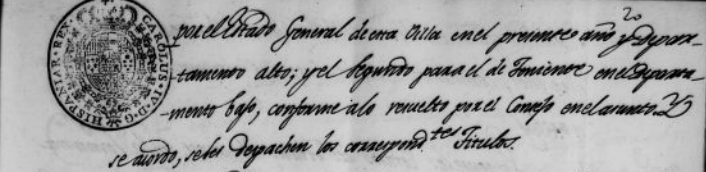 20
CAROLUS·IV·D·G·HISPANIAR·REX·
por el Estado General de esta Villa en el presente año y Depar-
tamento alto; y el segundo para el de Teniente en el Departa-
mento bajo, conforme a lo resuelto por el Consejo en el asunto. Y
se acordó, se les despachen los correspond.tes Titulos.